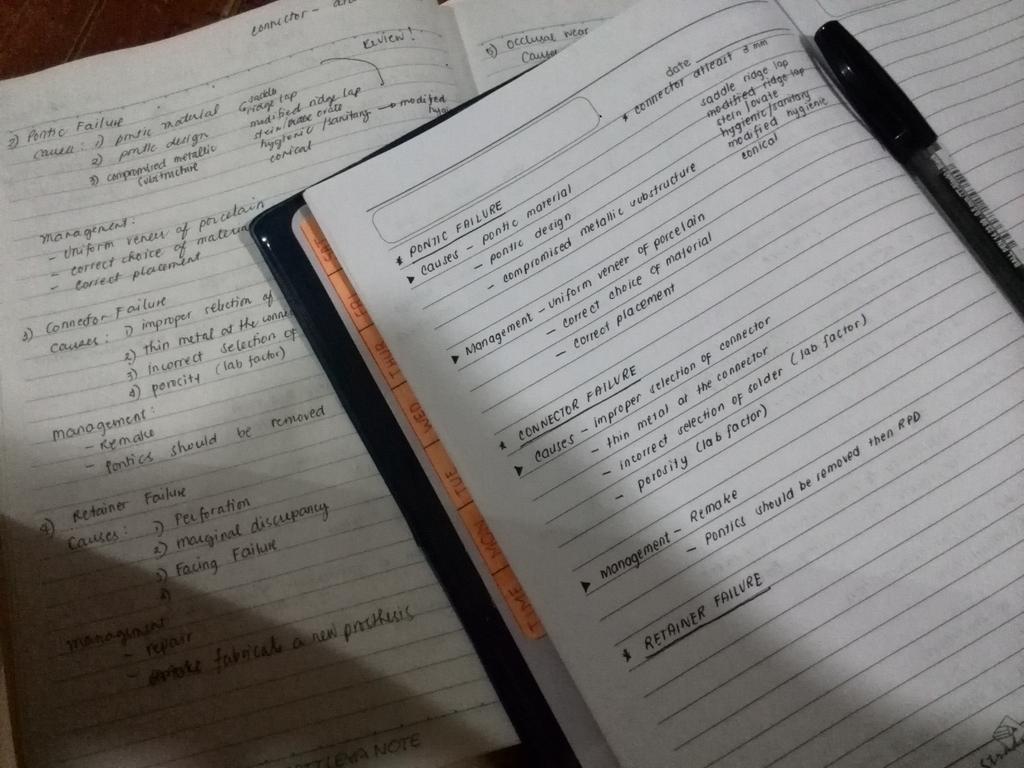 connector -
Review!
2) Pontic Failure
causes: 1) pontic material
2) pontic design
3) compromised metallic
substructure
saddle
ridge lap
modified ridge lap
stein / ovate
hygienic / sanitary → modified
conical
management:
- uniform veneer of porcelain
- correct choice of material
- correct placement
3) Connector Failure
causes: 1) improper selection of
2) thin metal at the
3) incorrect selection of
4) porosity (lab factor)
management:
- Remake
- Pontics should be removed
4) Retainer Failure
Causes: 1) Perforation
2) marginal discrepancy
3) Facing Failure
4)
management
- repair
- fabricate a new prosthesis
NOTE
5) Occlusal wear
Causes
date
* connector atleast 3 mm
* PONTIC FAILURE
➤ causes - pontic material
- pontic design
- compromised metallic substructure
saddle ridge lap
modified ridge lap
stein / ovate
hygienic / sanitary
modified hygienic
conical
➤ Management - Uniform veneer of porcelain
- correct choice of material
- correct placement
* CONNECTOR FAILURE
➤ causes - improper selection of connector
- thin metal at the connector
- incorrect selection of solder (lab factor)
- porosity (lab factor)
➤ Management - Remake
- Pontics should be removed then RPD
* RETAINER FAILURE
SAT
FRI
THUR
WED
TUE
MON
TIME